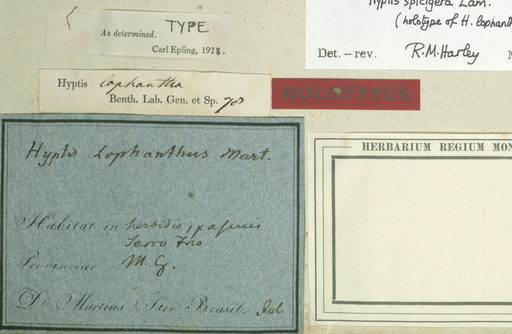 TYPE
As determined.
Carl Epling, 1928.
Hyptis spicigera Lam.
(holotype of H. lophanth
Det. – rev. R.M. Harley
Hyptis lophantha
Benth. Lab. Gen. et Sp. 78
HOLOTYPUS
Hyptis Lophanthus Mart.
Habitat in herbidis, pascuis
Serro Frio
Provinciae M. G.
Dr. Martius Iter Brasil. Jul
HERBARIUM REGIUM MON